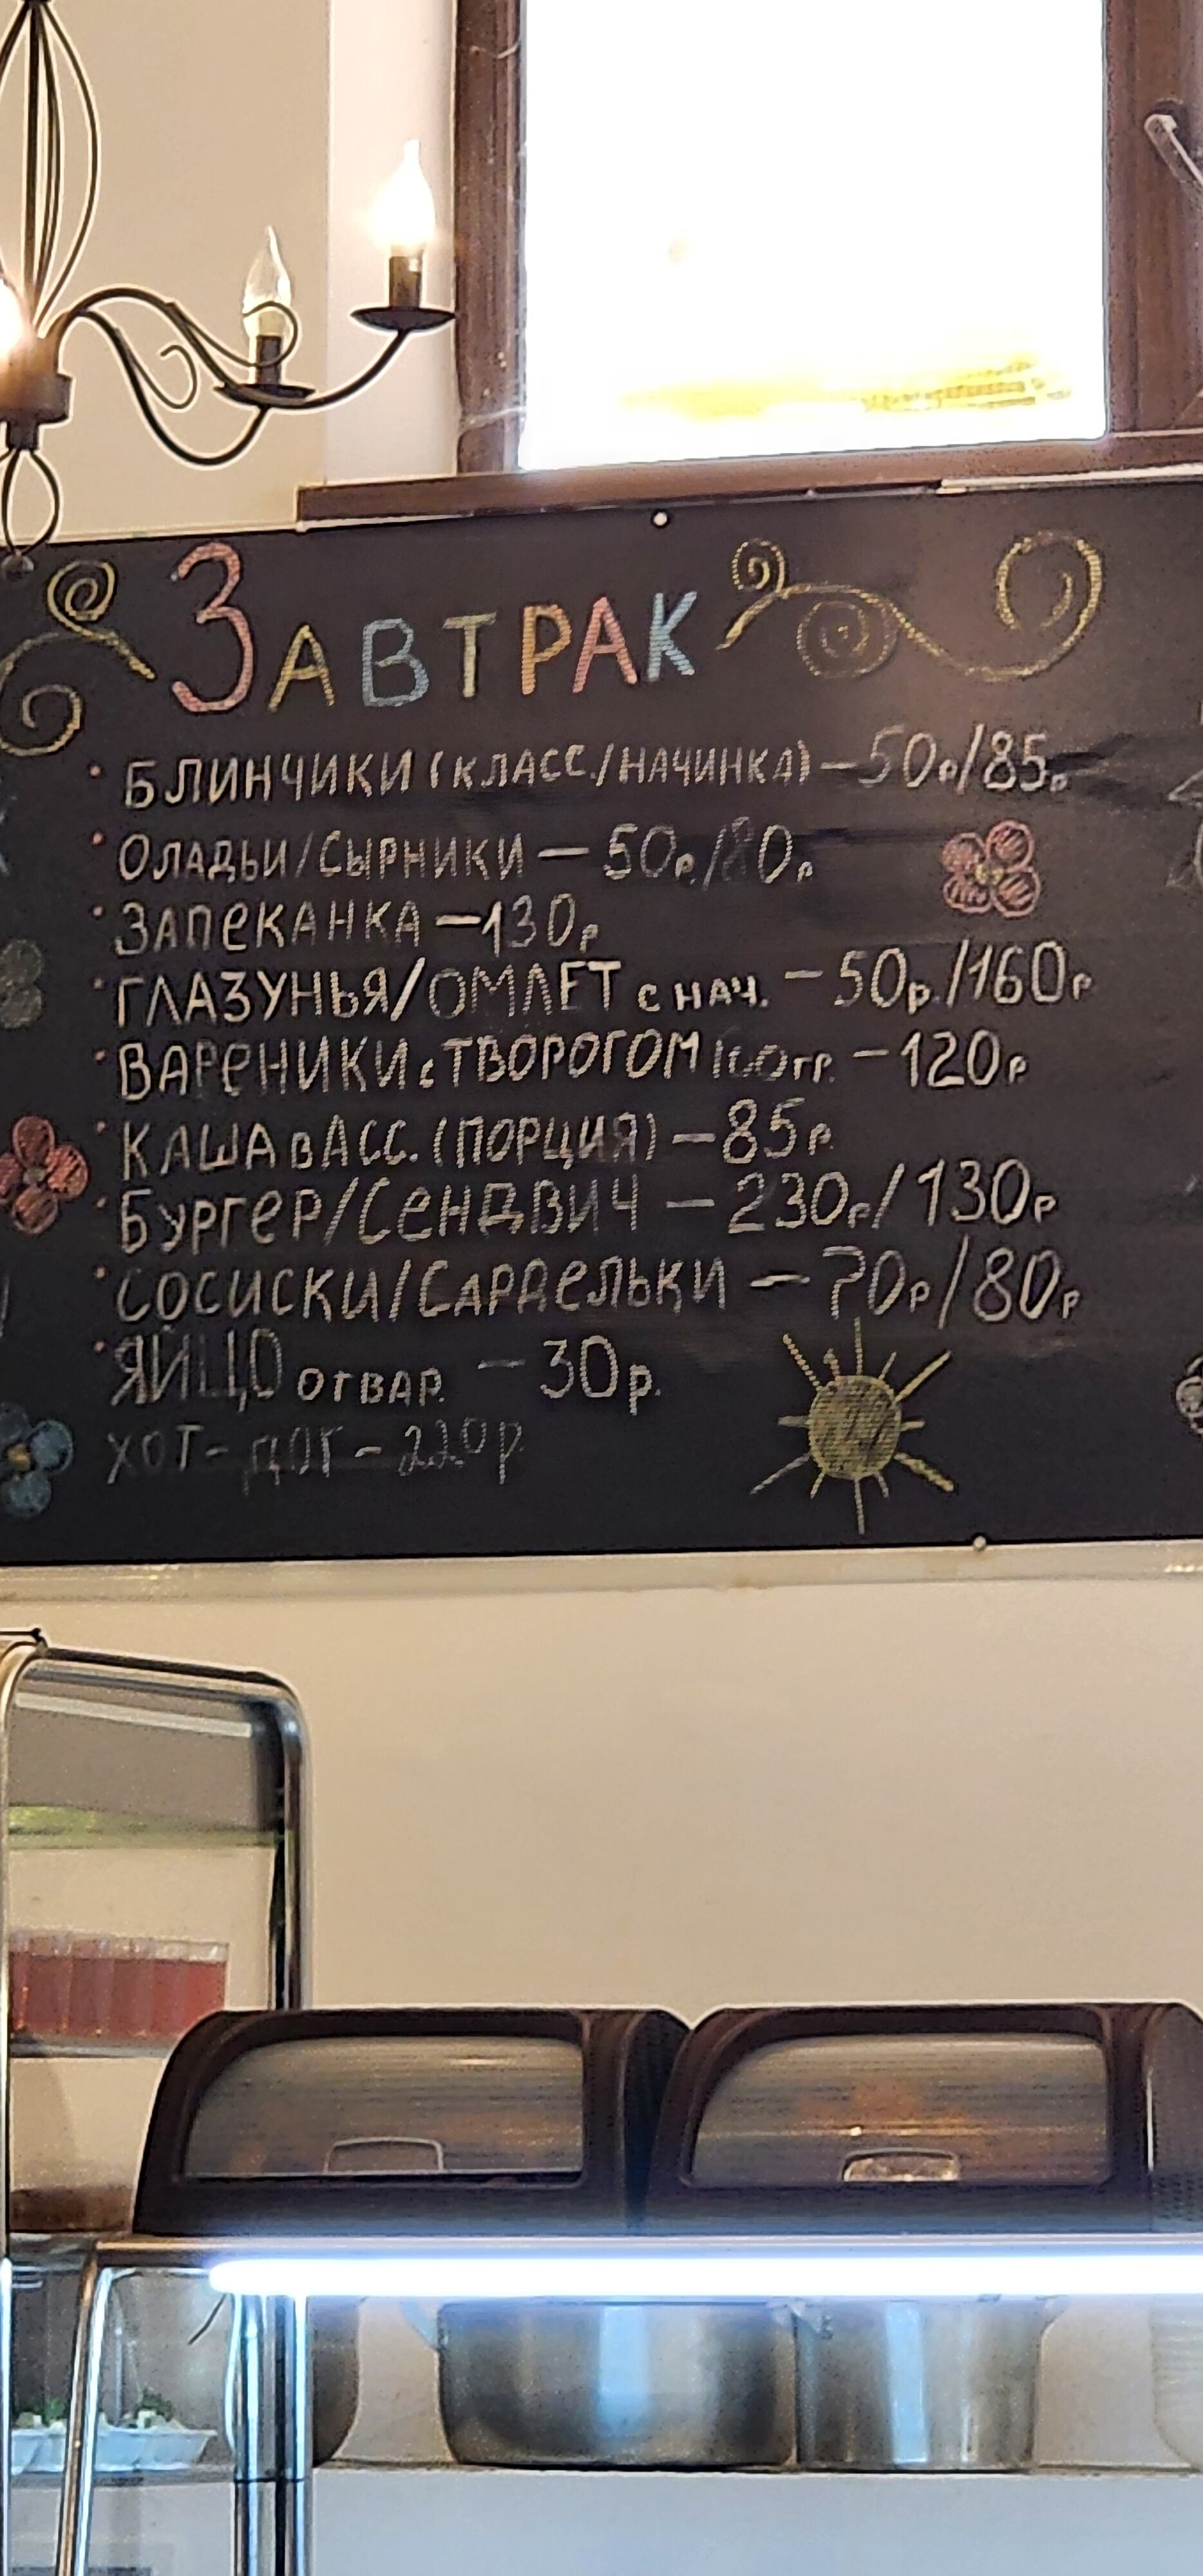 ЗАВТРАК
• БЛИНЧИКИ (КЛАСС./НАЧИНКА) – 50р/85р
• ОЛАДЬИ/СЫРНИКИ – 50р/80р
• ЗАПЕКАНКА – 130р
• ГЛАЗУНЬЯ/ОМЛЕТ с НАЧ. – 50р./160р
• ВАРЕНИКИ с ТВОРОГОМ 100гр. – 120р
• КАША в АСС. (ПОРЦИЯ) – 85р.
• БУРГЕР/СЕНДВИЧ – 230р/130р
• СОСИСКИ/САРДЕЛЬКИ – 70р/80р
• ЯЙЦО ОТВАР. – 30р.
ХОТ-ДОГ – 220р